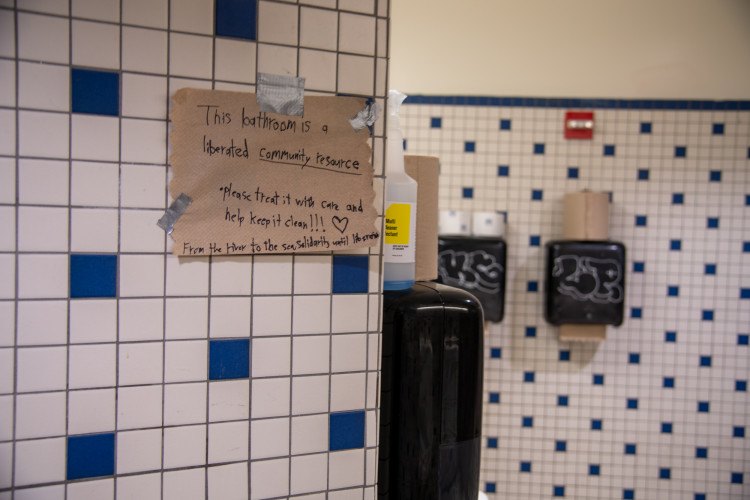 This bathroom is a
liberated community resource
• please treat it with care and
help keep it clean!!! ♡
From the river to the sea, solidarity until liberation
Multi